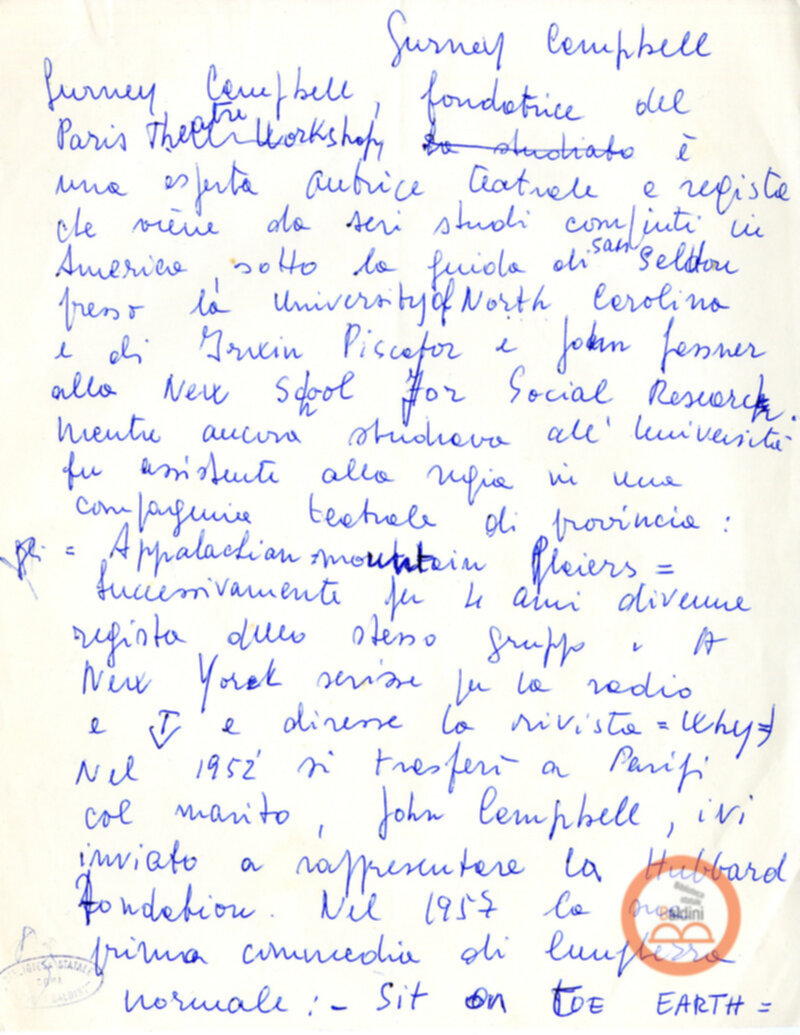 Gurney Campbell
Gurney Campbell, fondatrice del
Paris Theatre Workshop, ha studiato è
una esperta autrice teatrale e regista
che viene da seri studi compiuti in
America, sotto la guida di Sam Seldon
presso la University of North Carolina
e di Irwin Piscator e John Gassner
alla New School For Social Research.
Mentre ancora studiava all'Università
fu assistente alla regia in una
compagnia teatrale di provincia :
gli = Appalachian mountain Plaiers =
Successivamente per 4 anni divenne
regista dello stesso gruppo. A
New York scrisse per la radio
e TV e diresse la rivista = Why =
Nel 1952 si trasferì a Parigi
col marito, John Campbell, ivi
inviato a rappresentare la Hubbard
Fondation. Nel 1957 la sua
prima commedia di lunghezza
normale : - Sit on the EARTH =
Biblioteca
statale
Baldini